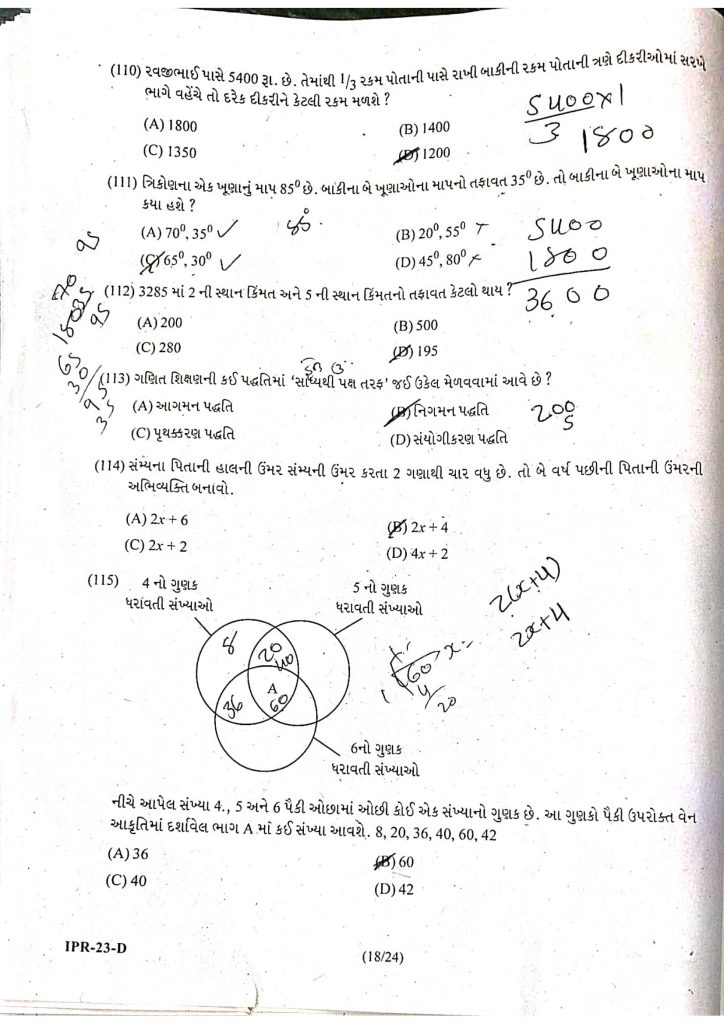 (110) રવજીભાઈ પાસે 5400 રૂા. છે. તેમાંથી 1/3 રકમ પોતાની પાસે રાખી બાકીની રકમ પોતાની ત્રણે દીકરીઓમાં સરખે
ભાગે વહેંચે તો દરેક દીકરીને કેટલી રકમ મળશે ?
5400×1
3 1800
(A) 1800 (B) 1400
(C) 1350 (D) 1200
(111) ત્રિકોણના એક ખૂણાનું માપ 85⁰ છે. બાકીના બે ખૂણાઓના માપનો તફાવત 35⁰ છે. તો બાકીના બે ખૂણાઓના માપ
કયા હશે ?
(A) 70⁰, 35⁰ (B) 20⁰, 55⁰
(C) 65⁰, 30⁰ (D) 45⁰, 80⁰
5400
1800
3600
95
(112) 3285 માં 2 ની સ્થાન કિંમત અને 5 ની સ્થાન કિંમતનો તફાવત કેટલો થાય ?
(A) 200 (B) 500
(C) 280 (D) 195
65
30
95
35
(113) ગણિત શિક્ષણની કઈ પદ્ધતિમાં ‘સાધ્યથી પક્ષ તરફ’ જઈ ઉકેલ મેળવવામાં આવે છે ?
(A) આગમન પદ્ધતિ (B) નિગમન પદ્ધતિ
(C) પૃથક્કરણ પદ્ધતિ (D) સંયોગીકરણ પદ્ધતિ
200
5
(114) સંમ્યના પિતાની હાલની ઉંમર સંમ્યની ઉંમર કરતા 2 ગણાથી ચાર વધુ છે. તો બે વર્ષ પછીની પિતાની ઉંમરની
અભિવ્યક્તિ બનાવો.
(A) 2x + 6 (B) 2x + 4
(C) 2x + 2 (D) 4x + 2
2(x+4)
2x+4
(115) 4 નો ગુણક
ધરાવતી સંખ્યાઓ
5 નો ગુણક
ધરાવતી સંખ્યાઓ
8
20
40
A
36
60
6નો ગુણક
ધરાવતી સંખ્યાઓ
નીચે આપેલ સંખ્યા 4., 5 અને 6 પૈકી ઓછામાં ઓછી કોઈ એક સંખ્યાનો ગુણક છે. આ ગુણકો પૈકી ઉપરોક્ત વેન
આકૃતિમાં દર્શાવેલ ભાગ A માં કઈ સંખ્યા આવશે. 8, 20, 36, 40, 60, 42
(A) 36 (B) 60
(C) 40 (D) 42
IPR-23-D
(18/24)